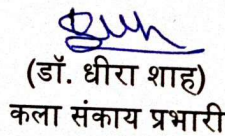 (डॉ. धीरा शाह)
कला संकाय प्रभारी